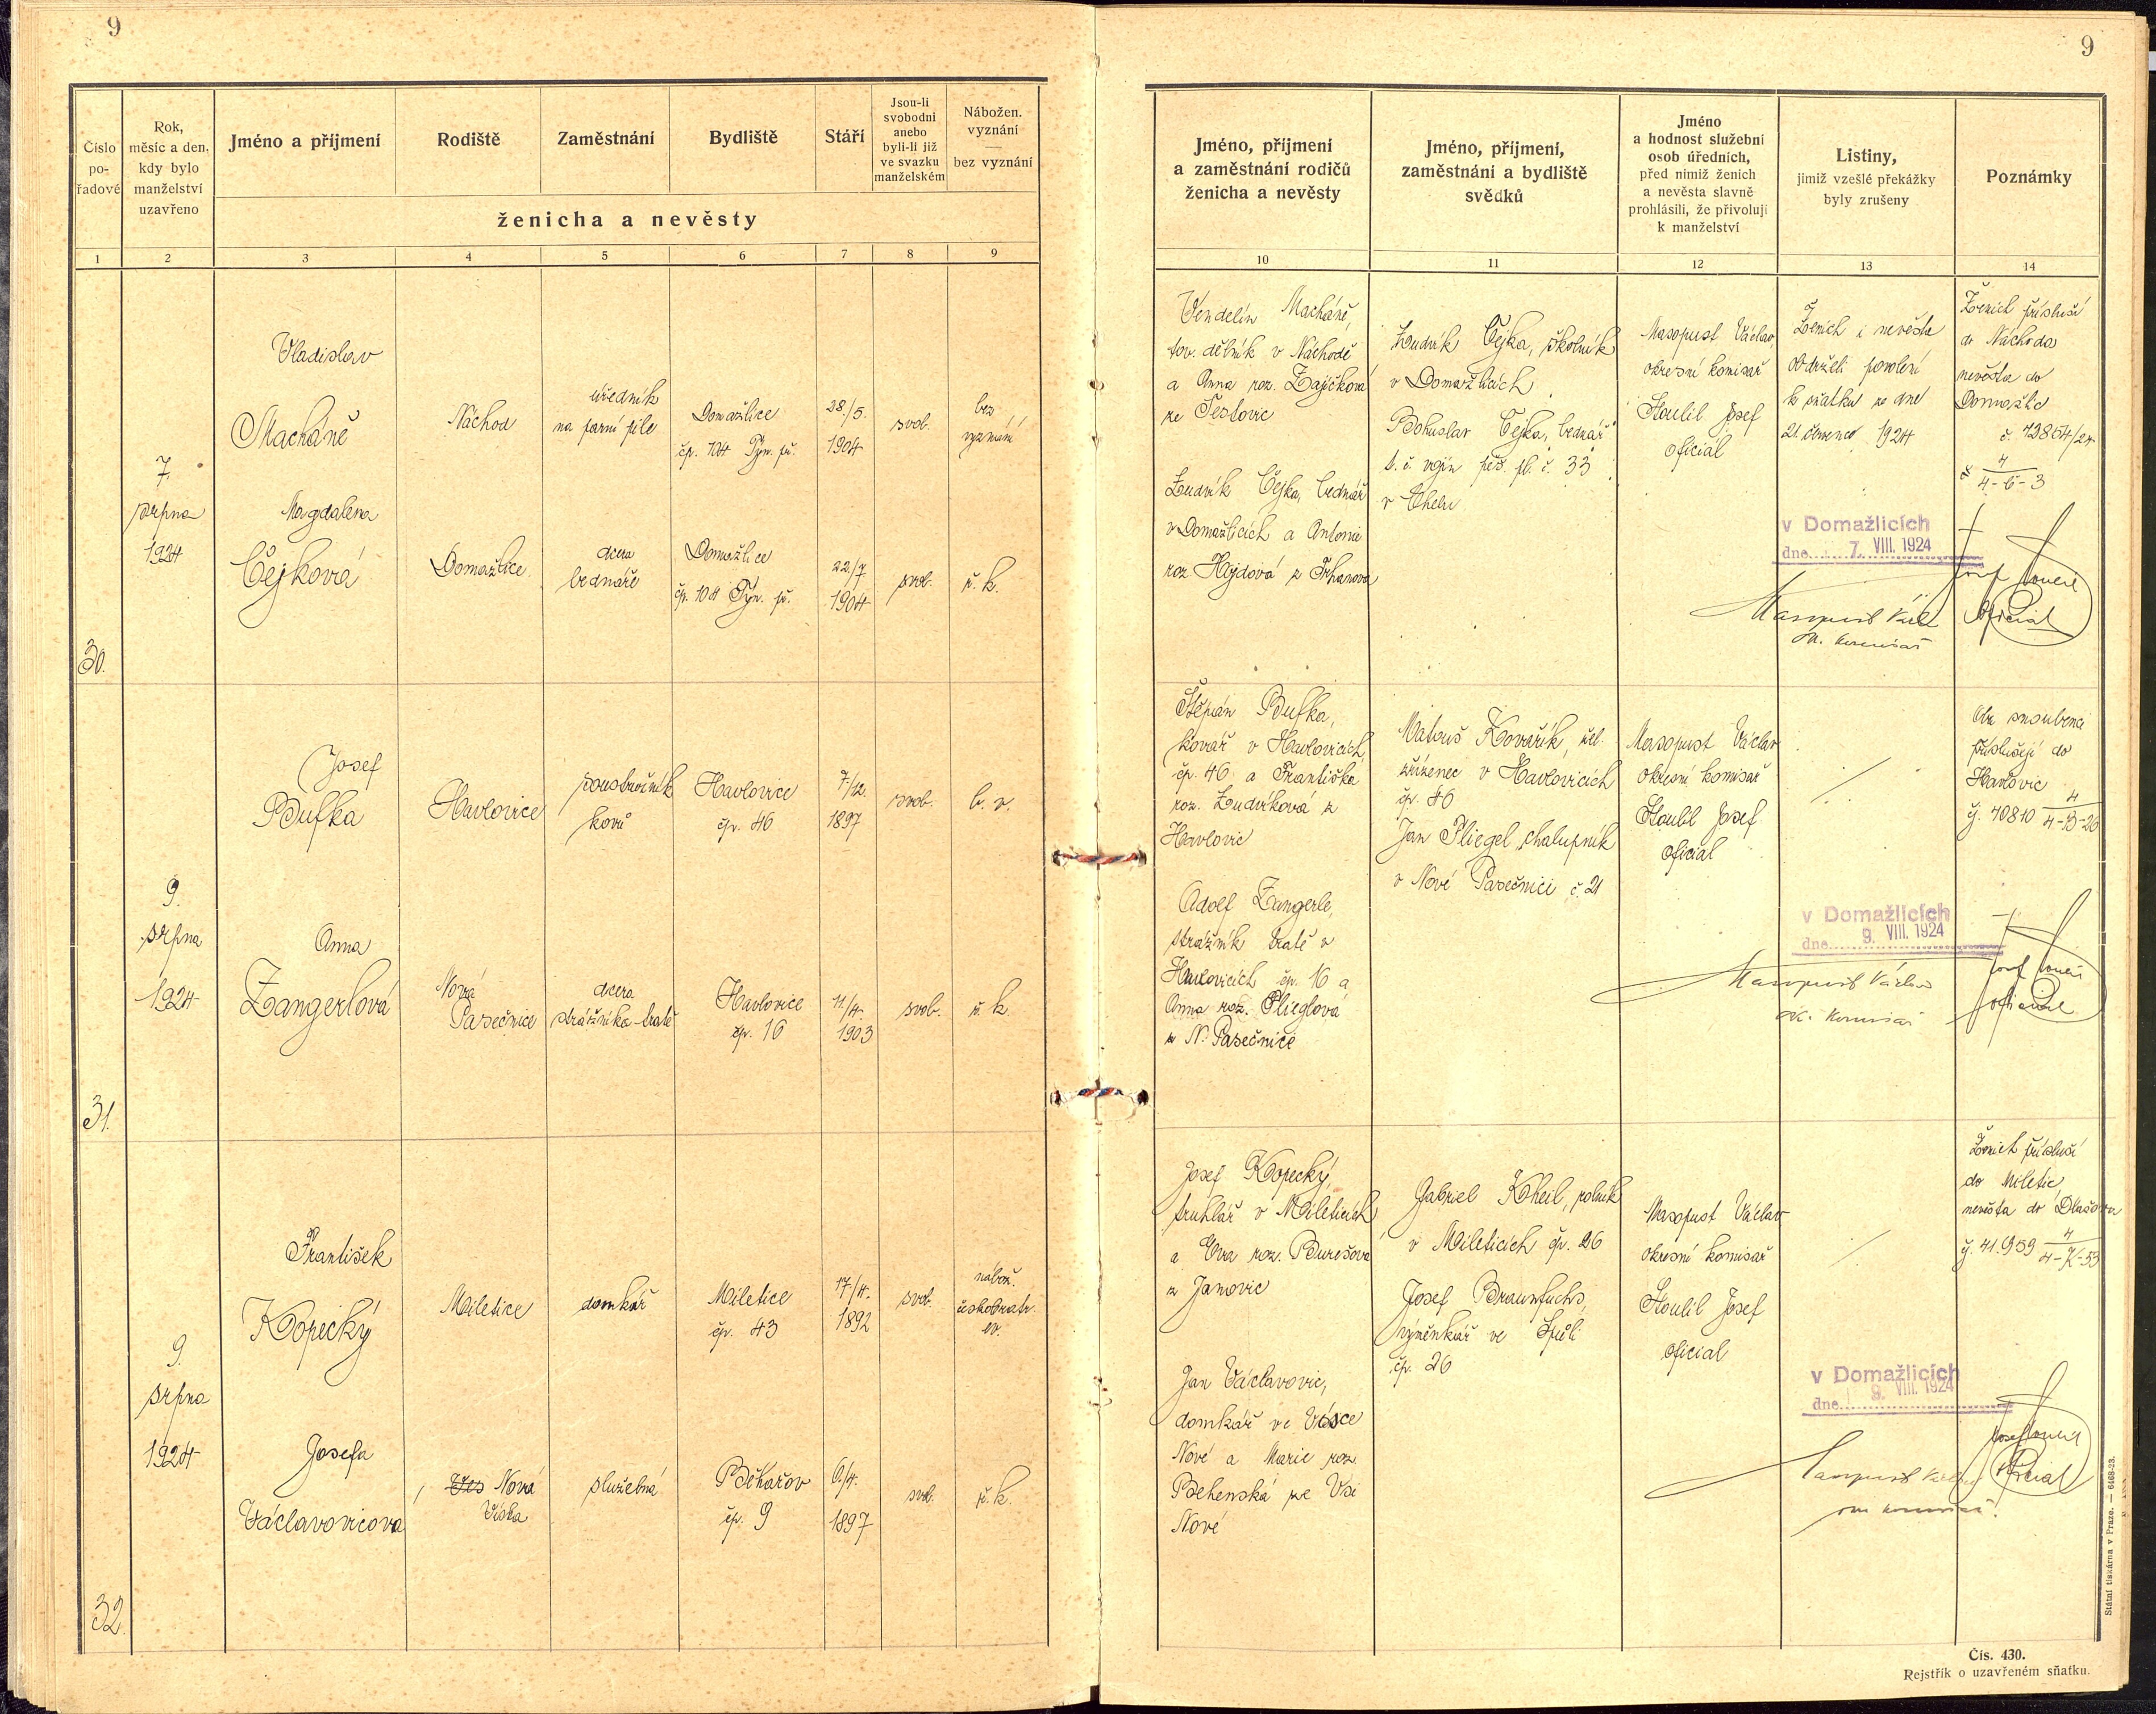 9
9
Číslo
po-
řadové
Rok,
měsíc a den,
kdy bylo
manželství
uzavřeno
Jméno a příjmení
Rodiště
Zaměstnání
Bydliště
Stáří
Jsou-li
svobodni
anebo
byli-li již
ve svazku
manželském
Nábožen.
vyznání
—
bez vyznání
ženicha a nevěsty
1
2
3
4
5
6
7
8
9
Jméno, příjmení
a zaměstnání rodičů
ženicha a nevěsty
Jméno, příjmení,
zaměstnání a bydliště
svědků
Jméno
a hodnost služební
osob úředních,
před nimiž ženich
a nevěsta slavně
prohlásili, že přivolují
k manželství
Listiny,
jimiž vzešlé překážky
byly zrušeny
Poznámky
10
11
12
13
14
30.
7.
srpna
1924
Vladislav
Macháně
Náchod
úředník
na parní pile
Domažlice
čp. 104 Týn. př.
28./5.
1904
svob.
bez
vyznání
Magdalena
Čejková
Domažlice
dcera
bednáře
Domažlice
čp. 104 Týn. př.
22./7
1904
svob.
ř. k.
Vendelín Macháně,
tov. dělník v Náchodě
a Anna roz. Zajíčková
ze Šestovic
Ludvík Čejka, bednář
v Domažlicích a Antonie
roz. Hojdová z Trhanova
Ludvík Čejka, školník
v Domažlicích
Bohuslav Čejka, bednář
t. č. vojín pěš. pl. č. 33
v Chebu
Masopust Václav
okresní komisař
Stoulil Josef
oficiál
Ženich i nevěsta
obdrželi povolení
k sňatku ze dne
21. července 1924
Ženich přísluší
do Náchoda
nevěsta do
Domažlic
č. 42864/24
4
4-6-3
v Domažlicích
dne 7. VIII. 1924
Masopust Václ
ok. komisař
Josef Stoulil
oficiál
31.
9.
srpna
1924
Josef
Bufka
Havlovice
soustružník
kovů
Havlovice
čp. 46
7/12.
1897
svob.
b. v.
Anna
Zangerlová
Nová
Pasečnice
dcera
strážníka tratě
Havlovice
čp. 16
11/4.
1903
svob.
ř. k.
Štěpán Bufka,
kovář v Havlovicích,
čp. 46 a Františka
roz. Ludvíková z
Havlovic
Adolf Zangerle,
strážník tratě v
Havlovicích čp. 16 a
Anna roz. Plieglová
z N. Pasečnice
Matouš Kovařík, žel.
zřízenec v Havlovicích
čp. 46
Jan Pliegel, chalupník
v Nové Pasečnici č. 21
Masopust Václav
okresní komisař
Stoulil Josef
oficiál
Oba snoubenci
příslušejí do
Havlovic
čj. 40810 4
4-B-26
v Domažlicích
dne 9. VIII. 1924
Masopust Václav
ok. komisař
Josef Stoulil
oficiál
32.
9.
srpna
1924
František
Kopecký
Miletice
domkář
Miletice
čp. 43
17/4.
1892
svob.
nábož.
českobratr.
ev.
Josefa
Václavovicova
Ves Nová
Víska
služebná
Běhařov
čp. 9
6/4.
1897
svob.
ř. k.
Josef Kopecký,
truhlář v Mileticích
a Eva roz. Burešova
z Janovic
Jan Václavovic,
domkář ve Vísce
Nové a Marie roz.
Behenská ze Vsi
Nové
Gabriel Kheil, rolník
v Mileticích čp. 26
Josef Braunfuchs,
výměnkář ve Spůli
čp. 26
Masopust Václav
okresní komisař
Stoulil Josef
oficiál
Ženich přísluší
do Miletic,
nevěsta do Dlažova
čj. 41.959 4
4-K-53
v Domažlicích
dne 9. VIII. 1924
Masopust Václav
okr. komisař
Josef Stoulil
oficiál
Státní tiskárna v Praze. — 6468-23.
Čís. 430.
Rejstřík o uzavřeném sňatku.